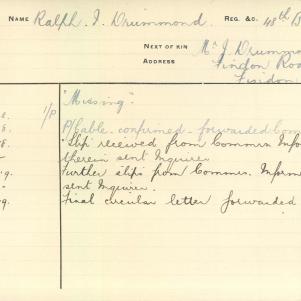 NAME Ralph. I. Drummond. REG. &C. 48th B
NEXT OF KIN Mr J Drummo
ADDRESS Findon Roa
Findon
1/P "Missing".
P/Cable confirmed forwarded Com
Slip received from Commn. Infor
therein sent Inquirer.
Further slips from Commn. Inform
sent Inquirer.
Final circular letter forwarded